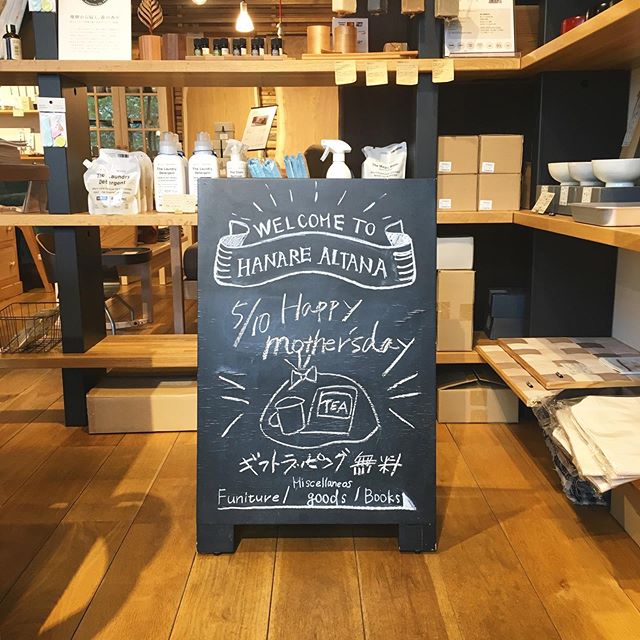 The Laundry
Detergent
The Laundry
Detergent
WELCOME TO
HANARE ALTANA
5/10 Happy
mother'sday
TEA
ギフトラッピング無料
Miscellaneas
Funiture / goods / Books